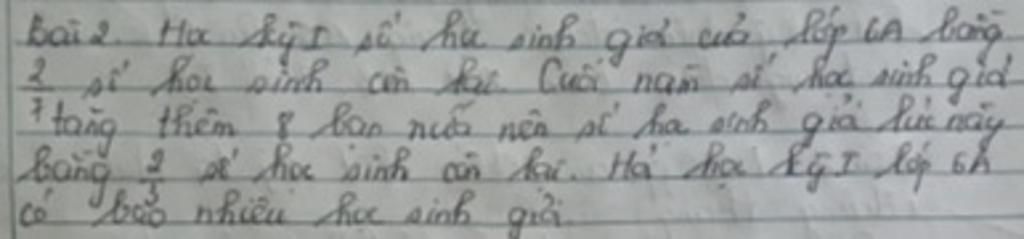 Bài 2. Học kỳ I số học sinh giỏi của lớp 6A bằng
2/7 số học sinh còn lại. Cuối năm số học sinh giỏi
tăng thêm 8 bạn nữa nên số học sinh giỏi lúc này
bằng 2/3 số học sinh còn lại. Hỏi học kỳ I lớp 6A
có bao nhiêu học sinh giỏi.